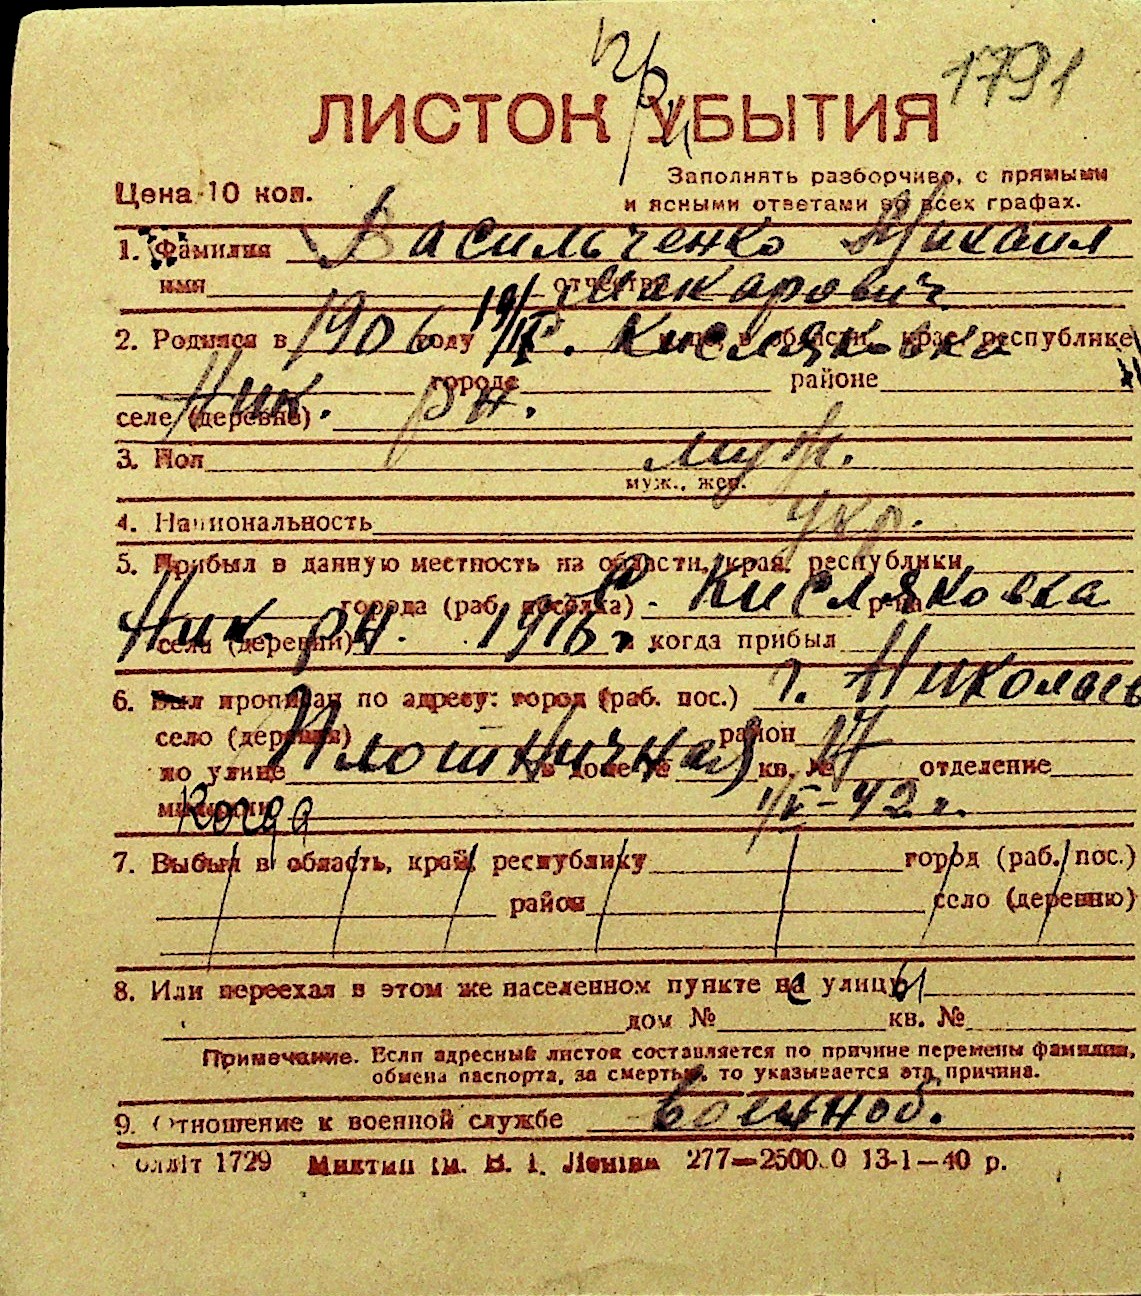 При
1791
ЛИСТОК УБЫТИЯ
Цена 10 коп.
Заполнять разборчиво, с прямыми
и ясными ответами во всех графах.
1. Фамилия Васильченко Михаил
имя отчество Макарович
2. Родился в 1906 году 19/IV с. Кисляковка области, крае, республике
городе районе
селе (деревне) Ник. рн.
3. Пол муж.
муж., жен.
4. Национальность укр.
5. Прибыл в данную местность из области, края, республики
города (раб. поселка) с Кисляковка р-на
села (деревни) Ник. рн. г. и когда прибыл
6. Был прописан по адресу: город (раб. пос.) г. Николаев
село (деревня) район
по улице Плотничная в доме № 17 кв. № отделение
милиции Когда 1/V-42 г.
7. Выбыл в область, край, республику город (раб. пос.)
район село (деревню)
8. Или переехал в этом же населенном пункте с улицы
дом № кв. №
Примечание. Если адресный листок составляется по причине перемены фамилии,
обмена паспорта, за смертью, то указывается эта причина.
9. Отношение к военной службе военноб.
1729 ім. В. І. Леніна 277—2500.0 13-1—40 р.